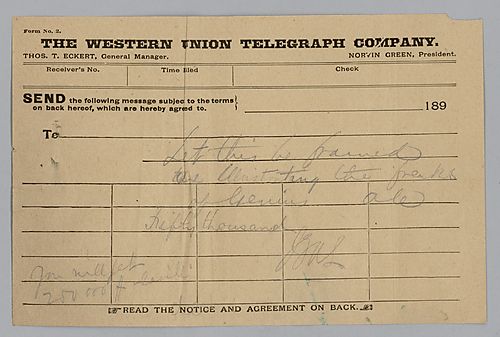 Form No. 2.
THE WESTERN UNION TELEGRAPH COMPANY.
THOS. T. ECKERT, General Manager. NORVIN GREEN, President.
Receiver's No. Time filed Check
SEND the following message subject to the terms
on back hereof, which are hereby agreed to. 189
To
Let this be framed
as illustrating the freaks
of Genius
Fifty thousand
you will get
250 000
READ THE NOTICE AND AGREEMENT ON BACK.